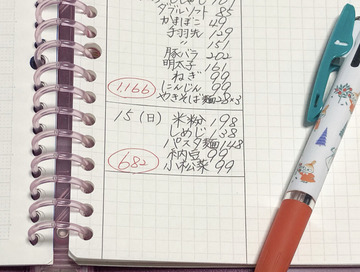 ダブルソフト 85
かまぼこ 49
手羽先 129
〃 151
豚バラ 202
明太子 161
ねぎ 99
にんじん 99
やきそば麺28×3
1,166
15(日) 米粉 198
しめじ 138
パスタ麺 148
納豆 99
小松菜 99
682